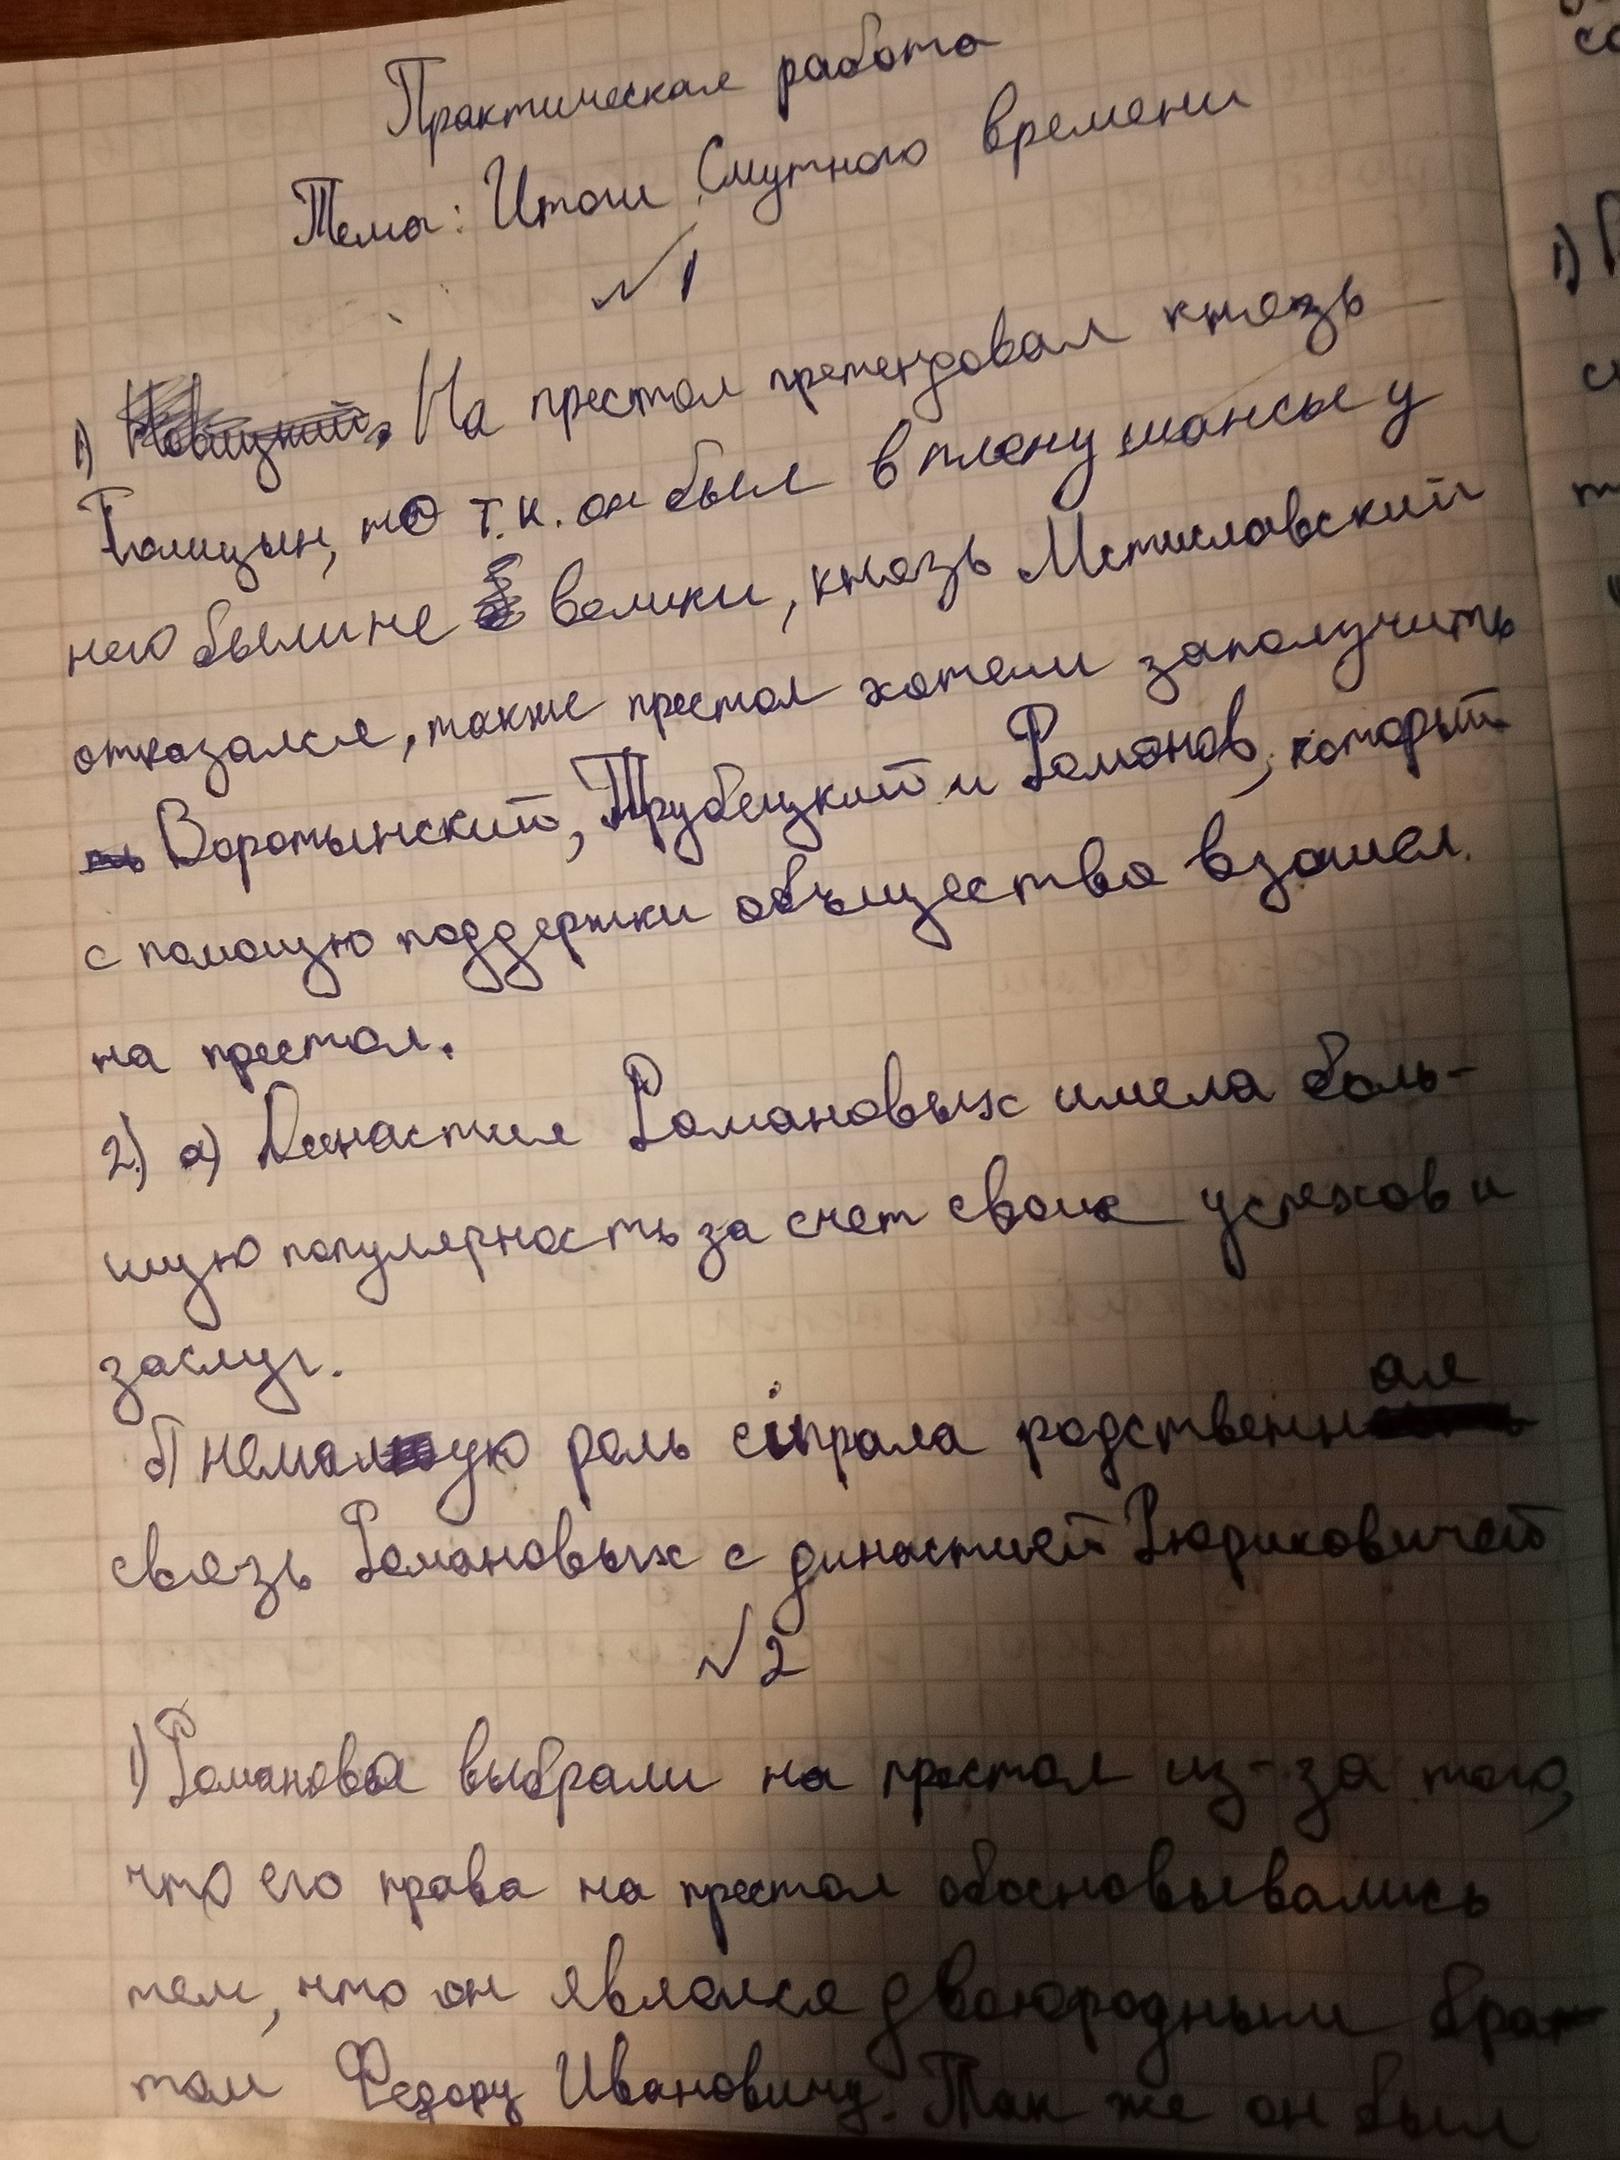 Практическая работа
Тема: Итоги Смутного времени
№1
1) На престол претендовал князь
Голицын, но т.к. он был в плену шансы у
него были не велики, князь Мстиславский
отказался, также престол хотели заполучить
Воротынский, Трубецкий и Романов, который
с помощю поддержки объщества взошел
на престол.
2) а) Династия Романовых имела боль-
шую популярность за счет своих успехов и
заслуг.
б) немалую роль сыграла родственная
связь Романовых с династией Рюриковичей
№2
1) Романова выбрали на престол из-за того,
что его права на престол обосновывались
тем, что он являлся двоюродным бра-
том Федору Ивановичу. Так же он был